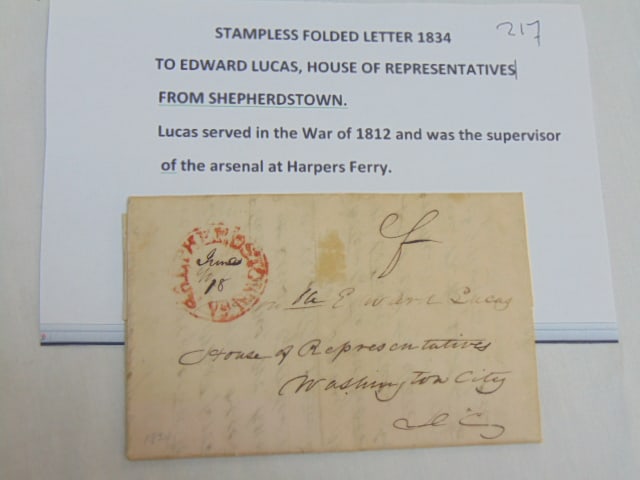 STAMPLESS FOLDED LETTER 1834
217
TO EDWARD LUCAS, HOUSE OF REPRESENTATIVES
FROM SHEPHERDSTOWN.
Lucas served in the War of 1812 and was the supervisor
of the arsenal at Harpers Ferry.
SHEPHERDSTOWN
June
18
VA
Edward Lucas
House of Representatives
Washington City
D C
1834